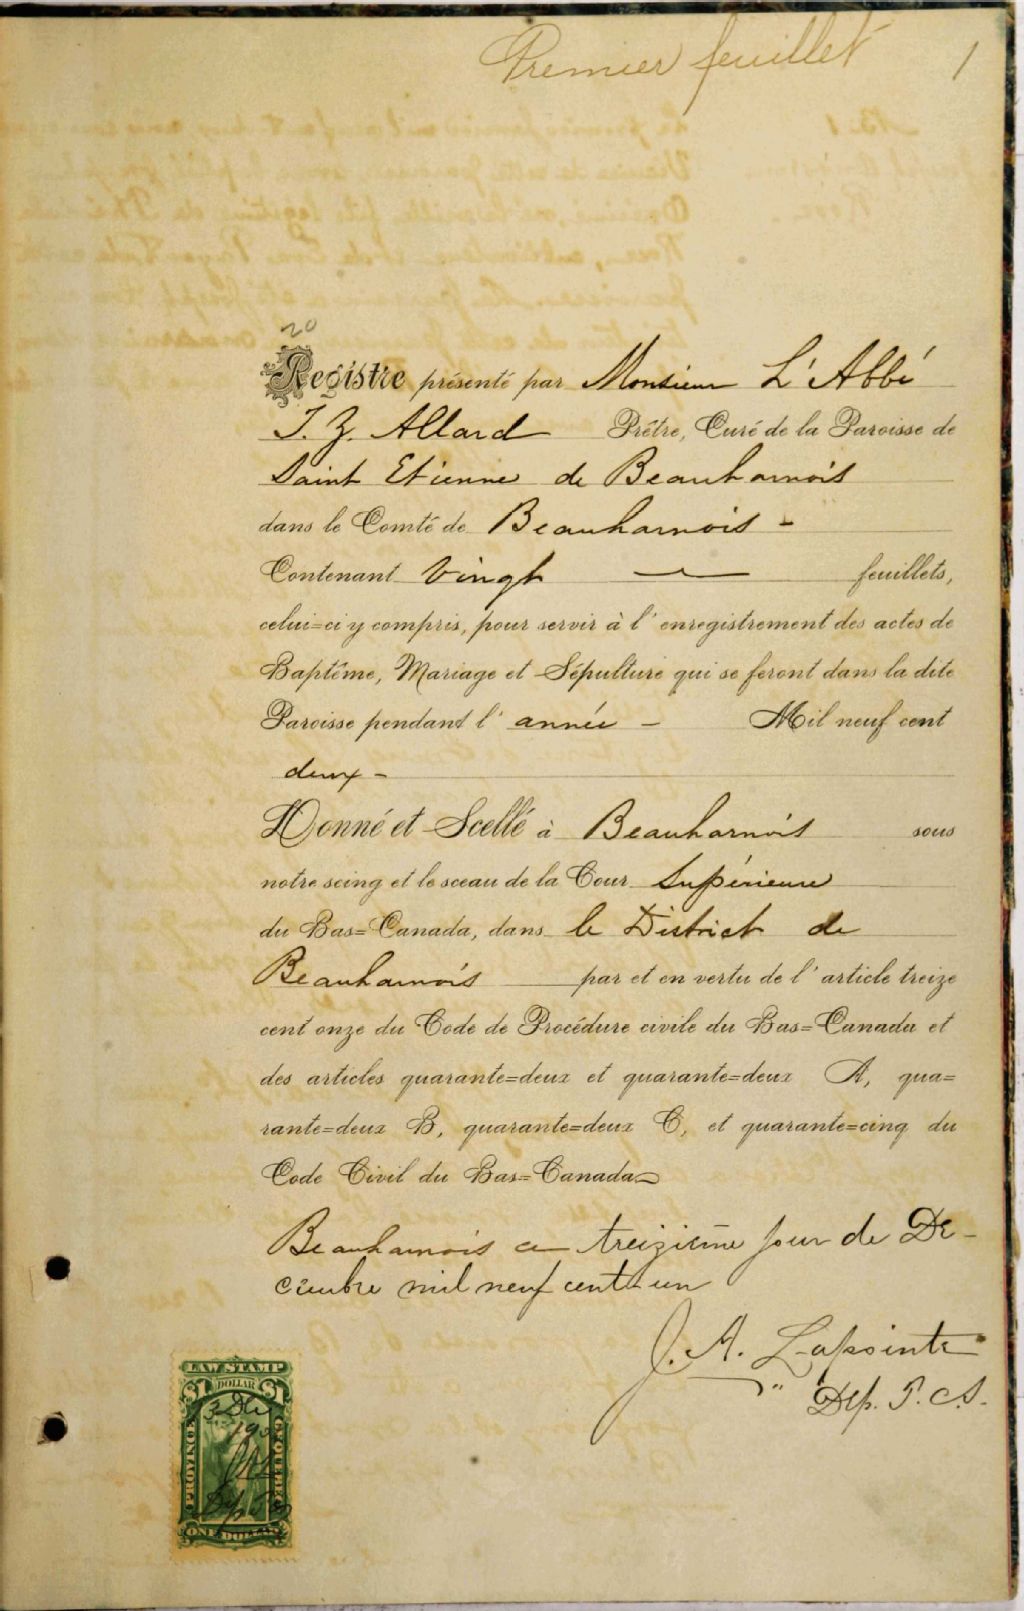 Premier feuillet 1
20
Registre présenté par Monsieur L'Abbé
J. Z. Allard Prêtre, Curé de la Paroisse de
Saint Etienne de Beauharnois
dans le Comté de Beauharnois -
Contenant Vingt feuillets,
celui=ci y compris, pour servir à l'enregistrement des actes de
Baptême, Mariage et Sépulture qui se feront dans la dite
Paroisse pendant l'année - Mil neuf cent
deux -
Donné et Scellé à Beauharnois sous
notre seing et le sceau de la Cour Supérieure
du Bas=Canada, dans le District de
Beauharnois par et en vertu de l'article treize
cent onze du Code de Procédure civile du Bas=Canada et
des articles quarante=deux et quarante=deux A, qua=
rante=deux B, quarante=deux C, et quarante=cinq du
Code Civil du Bas=Canada
Beauharnois ce treizième jour de De-
cembre mil neuf cent un
J. A. Lapointe
Dep. P. C. S.
LAW STAMP
$1 DOLLAR $1
PROVINCE
ONE DOLLAR